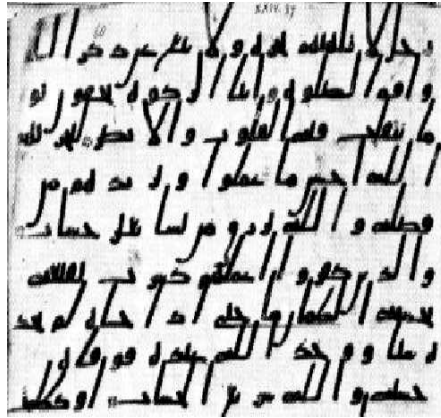 XXIV. 37
رجل لا تلهيهم تجره ولا بيع عن ذكر الله
واقم الصلوه وايتا الزكوه يخفون يو
ما تتقلب فيه القلوب والابصر ليجزيهم
الله احسن ما عملوا ويزيدهم من
فضله والله يرزق من يشا بغير حساب
والذين كفروا اعملهم كسراب بقيعه
يحسبه الظمان ما حتى اذا جاه لم يجد
ه شيا ووجد الله عنده فوفه
حسابه والله سريع الحساب او كظلمت